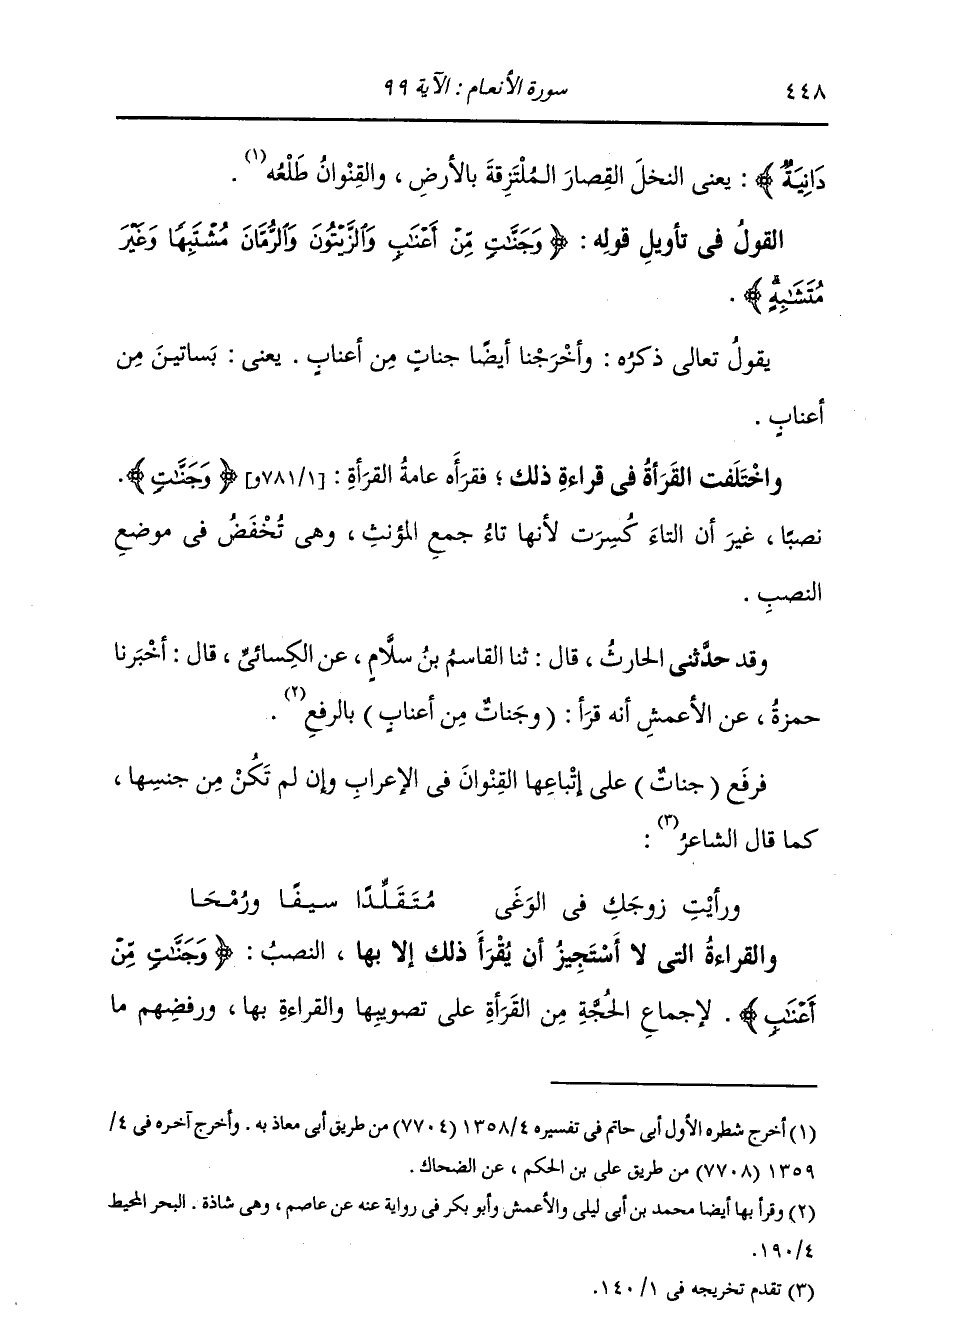 ٤٤٨ سورة الأنعام : الآية ٩٩
دَانِيَةٌ ﴾ : يعنى النخلَ القِصارَ المُلْتَزِقةَ بالأرضِ ، والقِنْوانُ طَلْعُه(١) .
القولُ فى تأويلِ قولِه : ﴿ وَجَنَّٰتٍ مِّنْ أَعْنَابٍ وَٱلزَّيْتُونَ وَٱلرُّمَّانَ مُشْتَبِهًا وَغَيْرَ
مُتَشَٰبِهٍ ﴾ .
يقولُ تعالى ذكرُه : وأَخْرَجْنا أيضًا جناتٍ مِن أعنابٍ . يعنى : بَساتينَ مِن
أعنابٍ .
واخْتَلَفت القَرَأةُ فى قراءةِ ذلك ؛ فقرَأه عامةُ القرَأةِ : [٧٨١/١و] ﴿ وَجَنَّٰتٍ ﴾ .
نصبًا ، غيرَ أن التاءَ كُسِرَت لأنها تاءُ جمعِ المؤنثِ ، وهى تُخْفَضُ فى موضعِ
النصبِ .
وقد حدَّثنى الحارثُ ، قال : ثنا القاسمُ بنُ سلَّامٍ ، عن الكِسائىِّ ، قال : أخْبَرنا
حمزةُ ، عن الأعمشِ أنه قرَأ : ( وجَناتٌ مِن أعنابٍ ) بالرفعِ(٢) .
فرفَع ( جناتٌ ) على إتْباعِها القِنْوانَ فى الإعرابِ وإن لم تَكُنْ مِن جنسِها ،
كما قال الشاعرُ(٣) :
ورأيْتِ زوجَكِ فى الوَغَى مُتَقَلِّدًا سيفًا ورُمْحَا
والقراءةُ التى لا أَسْتَجِيزُ أن يُقْرَأَ ذلك إلا بها ، النصبُ : ﴿ وَجَنَّٰتٍ مِّنْ
أَعْنَابٍ ﴾ . لإجماعِ الحُجَّةِ مِن القَرَأةِ على تصويبِها والقراءةِ بها ، ورفضِهم ما
(١) أخرج شطره الأول أبى حاتم فى تفسيره ١٣٥٨/٤ (٧٧٠٤) من طريق أبى معاذ به . وأخرج آخره فى ٤/
١٣٥٩ (٧٧٠٨) من طريق على بن الحكم ، عن الضحاك .
(٢) وقرأ بها أيضا محمد بن أبى ليلى والأعمش وأبو بكر فى رواية عنه عن عاصم ، وهى شاذة . البحر المحيط
١٩٠/٤.
(٣) تقدم تخريجه فى ١٤٠/١.